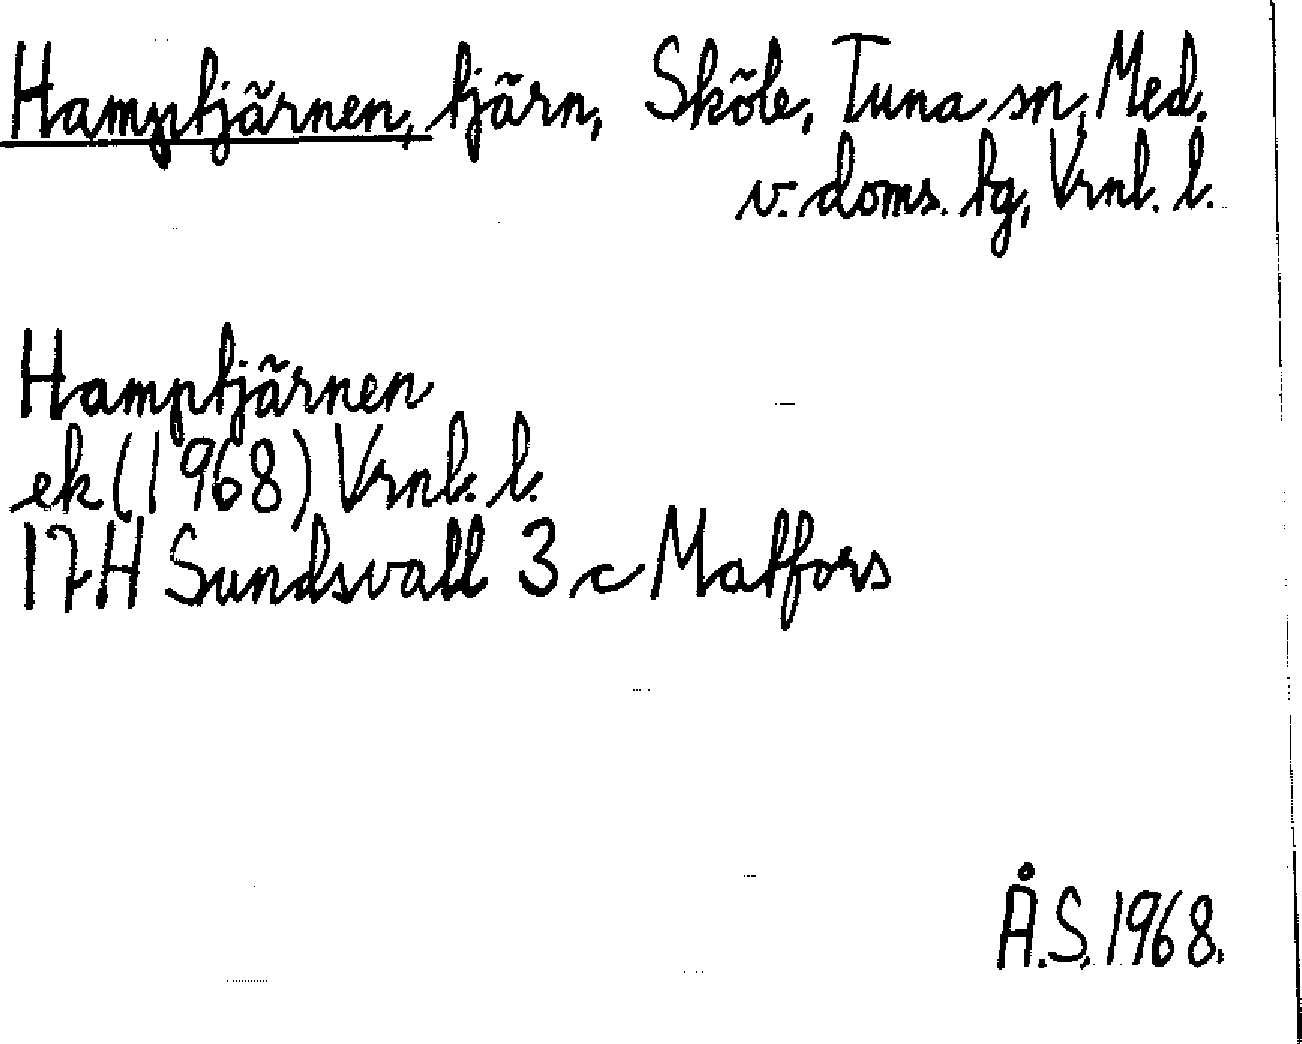 Hamptjärnen, tjärn, Sköle, Tuna sn, Med.
v. doms. tg, Vrnl. l.
Hamptjärnen
ek (1968) Vrnl. l.
17H Sundsvall 3 c Matfors
Å.S. 1968.